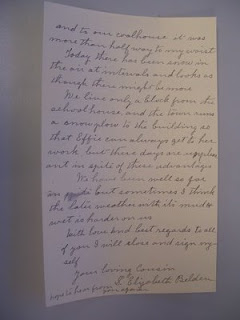 and to our coalhouse it was
more than half way to my waist.
Today there has been snow in
the air at intervals and looks as
though there might be more
We live only a block from the
schoolhouse, and the town runs
a snowplow to the building so
that Effie can always get to her
work but these days are unpleas-
ant in spite of these advantages
We have been well so far
in but sometimes I think
the later weather with its mud &
wet is harder on us
With love and best regards to all
of you I will close and sign my-
self
Your loving Cousin
S. Elizabeth Belden
hope to hear from you again